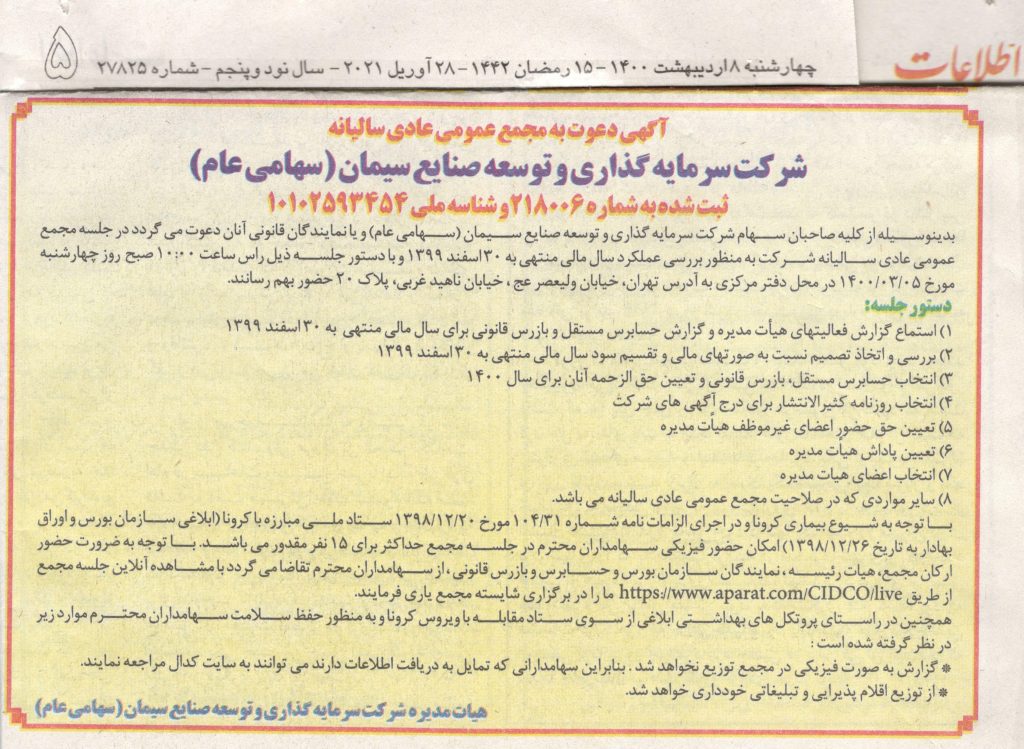 اطلاعات
چهارشنبه ۸ اردیبهشت ۱۴۰۰ - ۱۵ رمضان ۱۴۴۲ - ۲۸ آوریل ۲۰۲۱ - سال نود و پنجم - شماره ۲۷۸۲۵
۵
آگهی دعوت به مجمع عمومی عادی سالیانه
شرکت سرمایه گذاری و توسعه صنایع سیمان (سهامی عام)
ثبت شده به شماره ۲۱۸۰۰۶ و شناسه ملی ۱۰۱۰۲۵۹۳۴۵۴
بدینوسیله از کلیه صاحبان سهام شرکت سرمایه گذاری و توسعه صنایع سیمان (سهامی عام) و یا نمایندگان قانونی آنان دعوت می گردد در جلسه مجمع
عمومی عادی سالیانه شرکت به منظور بررسی عملکرد سال مالی منتهی به ۳۰ اسفند ۱۳۹۹ و با دستور جلسه ذیل راس ساعت ۱۰:۰۰ صبح روز چهارشنبه
مورخ ۱۴۰۰/۰۳/۰۵ در محل دفتر مرکزی به آدرس تهران، خیابان ولیعصر عج ، خیابان ناهید غربی، پلاک ۲۰ حضور بهم رسانند.
دستور جلسه:
۱) استماع گزارش فعالیتهای هیأت مدیره و گزارش حسابرس مستقل و بازرس قانونی برای سال مالی منتهی به ۳۰ اسفند ۱۳۹۹
۲) بررسی و اتخاذ تصمیم نسبت به صورتهای مالی و تقسیم سود سال مالی منتهی به ۳۰ اسفند ۱۳۹۹
۳) انتخاب حسابرس مستقل، بازرس قانونی و تعیین حق الزحمه آنان برای سال ۱۴۰۰
۴) انتخاب روزنامه کثیرالانتشار برای درج آگهی های شرکت
۵) تعیین حق حضور اعضای غیرموظف هیأت مدیره
۶) تعیین پاداش هیأت مدیره
۷) انتخاب اعضای هیات مدیره
۸) سایر مواردی که در صلاحیت مجمع عمومی عادی سالیانه می باشد.
با توجه به شیوع بیماری کرونا و در اجرای الزامات نامه شماره ۱۰۴/۳۱ مورخ ۱۳۹۸/۱۲/۲۰ ستاد ملی مبارزه با کرونا (ابلاغی سازمان بورس و اوراق
بهادار به تاریخ ۱۳۹۸/۱۲/۲۶) امکان حضور فیزیکی سهامداران محترم در جلسه مجمع حداکثر برای ۱۵ نفر مقدور می باشد. با توجه به ضرورت حضور
ارکان مجمع، هیات رئیسه ، نمایندگان سازمان بورس و حسابرس و بازرس قانونی ، از سهامداران محترم تقاضا می گردد با مشاهده آنلاین جلسه مجمع
از طریق https://www.aparat.com/CIDCO/live ما را در برگزاری شایسته مجمع یاری فرمایند.
همچنین در راستای پروتکل های بهداشتی ابلاغی از سوی ستاد مقابله با ویروس کرونا و به منظور حفظ سلامت سهامداران محترم موارد زیر
در نظر گرفته شده است :
* گزارش به صورت فیزیکی در مجمع توزیع نخواهد شد . بنابراین سهامدارانی که تمایل به دریافت اطلاعات دارند می توانند به سایت کدال مراجعه نمایند.
* از توزیع اقلام پذیرایی و تبلیغاتی خودداری خواهد شد.
هیات مدیره شرکت سرمایه گذاری و توسعه صنایع سیمان (سهامی عام)